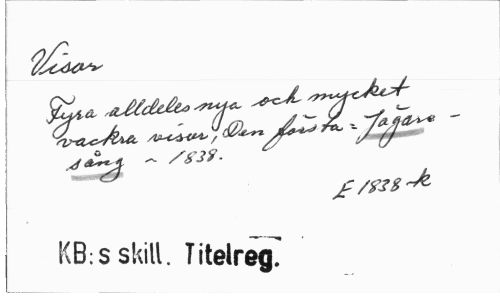 Visor
Fyra alldeles nya och mycket
vackra visor, Den första = Jägare -
sång ~ 1838.
E 1838-k
KB:s skill. Titelreg.